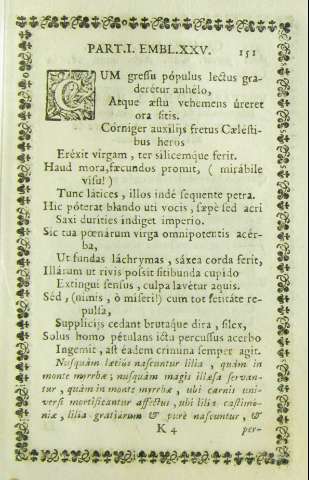 PART. I. EMBL. XXV. 151
CUM gressu pópulus lectus gra-
derétur anhélo,
Atque æstu vehemens úreret
ora sitis.
Córniger auxilijs fretus Cælésti-
bus heros
Eréxit virgam, ter silicemque ferit.
Haud mora, fæcundos promit, ( mirábile
visu! )
Tunc látices, illos indé sequente petra.
Hic póterat blando uti vocis, sæpè sed acri
Saxi durities indiget imperio.
Sic tua pœnárum virga omnipotentis acér-
ba,
Ut fundas láchrymas, sáxea corda ferit,
Illárum ut rivis possit sitibunda cupido
Extingui sensus, culpa lavétur aquis.
Séd, (nimis, ò míseri!) cum tot feritáte re-
pulsa,
Supplicijs cedant brutáque dira, silex,
Solus homo pétulans icta percussus acerbo
Ingemit, ast éadem crimina semper agit.
Nusquàm lætiùs nascuntur lilia, quàm in
monte myrrhæ; nusquàm magis illæsa servan-
tur, quàm in monte myrrhæ, ubi carnis uni-
versi mortificantur affectus, ubi lilia castimo-
niæ, lilia gratiarum & purè nascuntur, &
K 4
per-